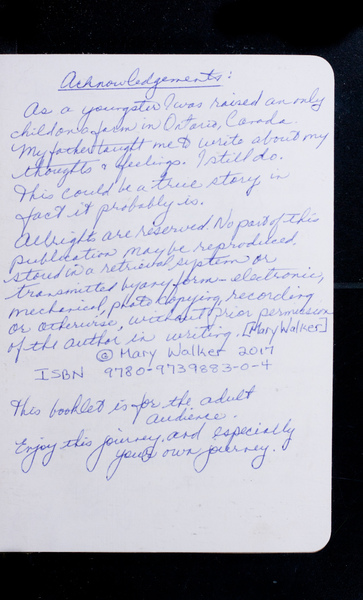 Acknowledgements:
As a youngster I was raised an only
child on a farm in Ontario, Canada.
My father taught me to write about my
thoughts & feelings. I still do.
This could be a true story in
fact it probably is.
All rights are reserved. No part of this
publication may be reproduced,
stored in a retrieval system or
transmitted by any form - electronic,
mechanical, photocopying, recording
or otherwise, without prior permission
of the author in writing. [Mary Walker]
© Mary Walker 2017
ISBN 9780-9739883-0-4
This booklet is for the adult
audience.
Enjoy this journey, and especially
your own journey.